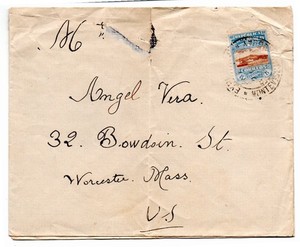 Angel Vera.
32. Bowdoin. St.
Worcester. Mass.
US
MONTEV